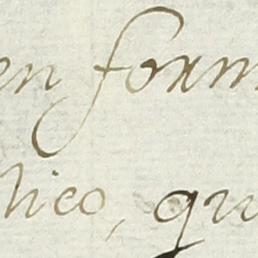 en form
lico, qu